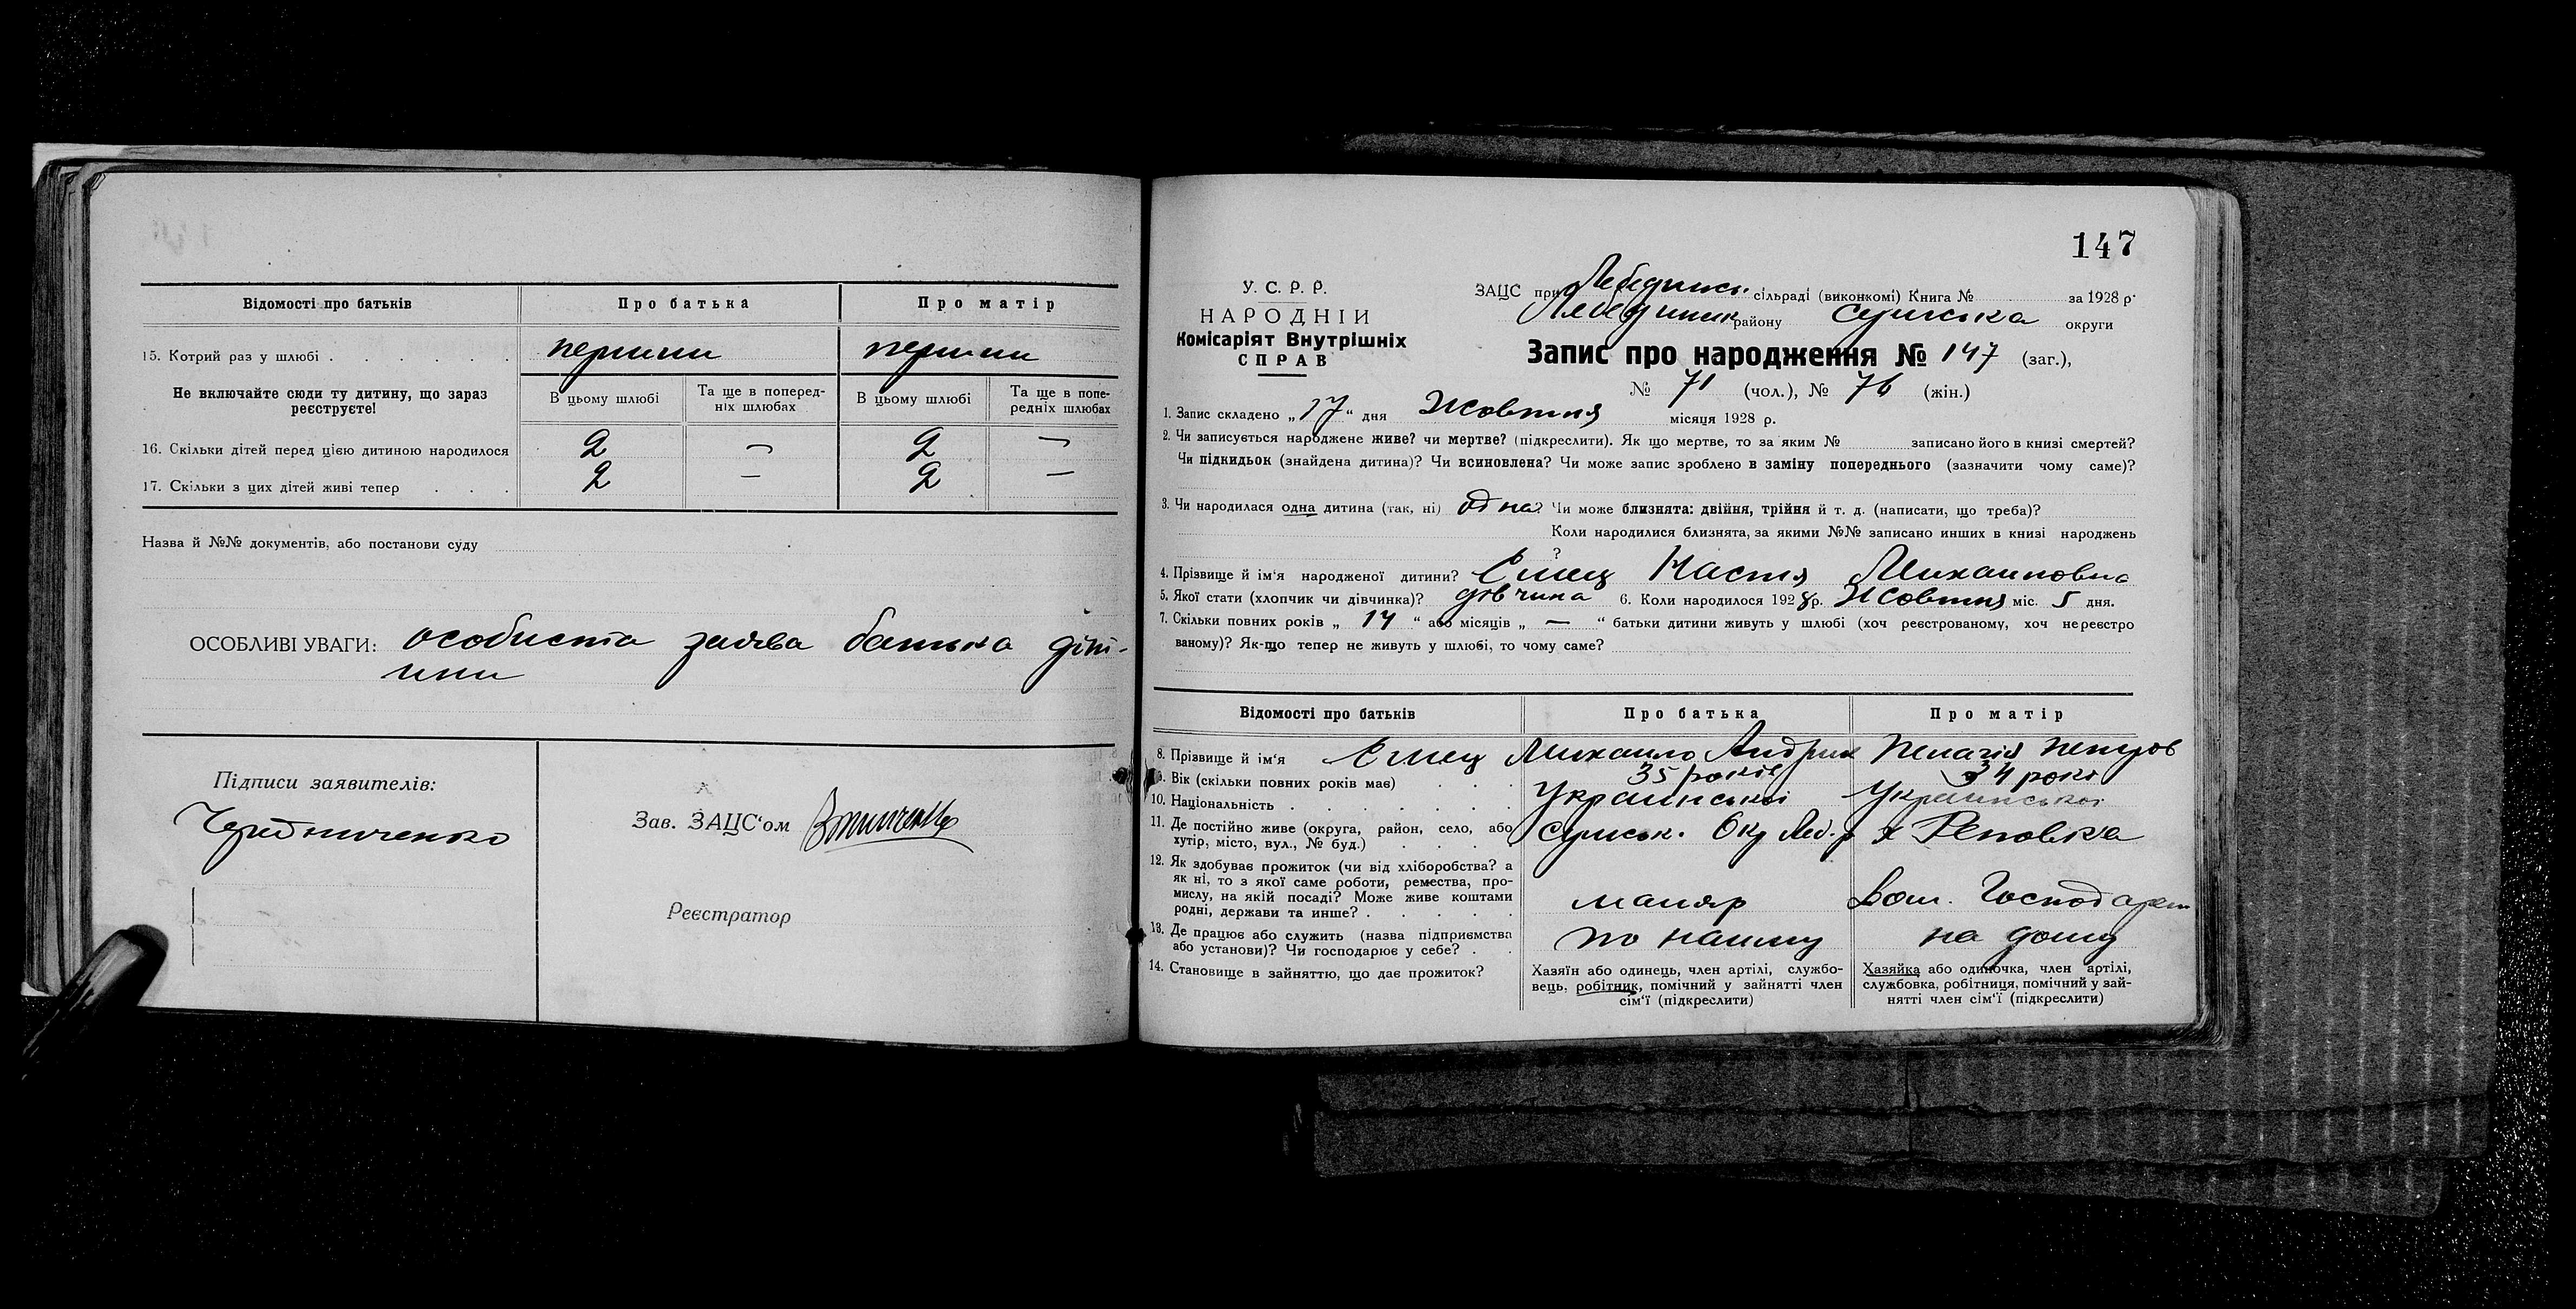 Відомості про батьків Про батька Про матір
15. Котрий раз у шлюбі . . . . . . першии першии
Не включайте сюди ту дитину, що зараз реєструєте!
В цьому шлюбі Та ще в поперед-ніх шлюбах В цьому шлюбі Та ще в попе-редніх шлюбах
16. Скільки дітей перед цією дитиною народилося 2 — 2 —
17. Скільки з цих дітей живі тепер . . . 2 — 2 —
Назва й №№ документів, або постанови суду
ОСОБЛИВІ УВАГИ: особиста заява батька діти-
ни
Підписи заявителів:
Зав. ЗАЦС'ом
Реєстратор
147
У. С. Р. Р.
НАРОДНІЙ
Комісаріят Внутрішніх
СПРАВ
ЗАЦС при Лебединск. сільраді (виконкомі) Книга № за 1928 р.
Лебединск району Сумська округи
Запис про народження № 147 (заг.),
№ 71 (чол.), № 76 (жін.)
1. Запис складено „17“ дня Жовтня місяця 1928 р.
2. Чи записується народжене живе? чи мертве? (підкреслити). Як що мертве, то за яким № записано його в книзі смертей?
Чи підкидьок (знайдена дитина)? Чи всиновлена? Чи може запис зроблено в заміну попереднього (зазначити чому саме)?
3. Чи народилася одна дитина (так, ні) одна? Чи може близнята: двійня, трійня й т. д. (написати, що треба)?
Коли народилися близнята, за якими №№ записано инших в книзі народжень
?
4. Прізвище й ім'я народженої дитини? Емец Настя Михаиловна
5. Якої стати (хлопчик чи дівчинка)? дівчина 6. Коли народилося 1928 р. Жовтня міс. 5 дня.
7. Скільки повних років „ 14 “ або місяців „ — “ батьки дитини живуть у шлюбі (хоч реєстрованому, хоч нереєстро
ваному)? Як-що тепер не живуть у шлюбі, то чому саме?
Відомості про батьків Про батька Про матір
8. Прізвище й ім'я Емец Михаило Андрии Пелагія Петров
9. Вік (скільки повних років має) . . . 35 років 34 рокі
10. Національність . . . . . . . Украинської Украинської
11. Де постійно живе (округа, район, село, або
хутір, місто, вул., № буд.) . . . . Сумськ. Окр Леб. р х Реповка
12. Як здобуває прожиток (чи від хліборобства? а
як ні, то з якої саме роботи, ремества, про-
мислу, на якій посаді? Може живе коштами
родні, держави та инше? . . . . . маляр Дом. Господарст
13. Де працює або служить (назва підприємства
або установи)? Чи господарює у себе? . . по найму на дому
14. Становище в зайняттю, що дає прожиток?
Хазяїн або одинець, член артілі, службо-
вець, робітник, помічний у зайнятті член
сім'ї (підкреслити)
Хазяйка або одиночка, член артілі,
службовка, робітниця, помічний у зай-
нятті член сім'ї (підкреслити)